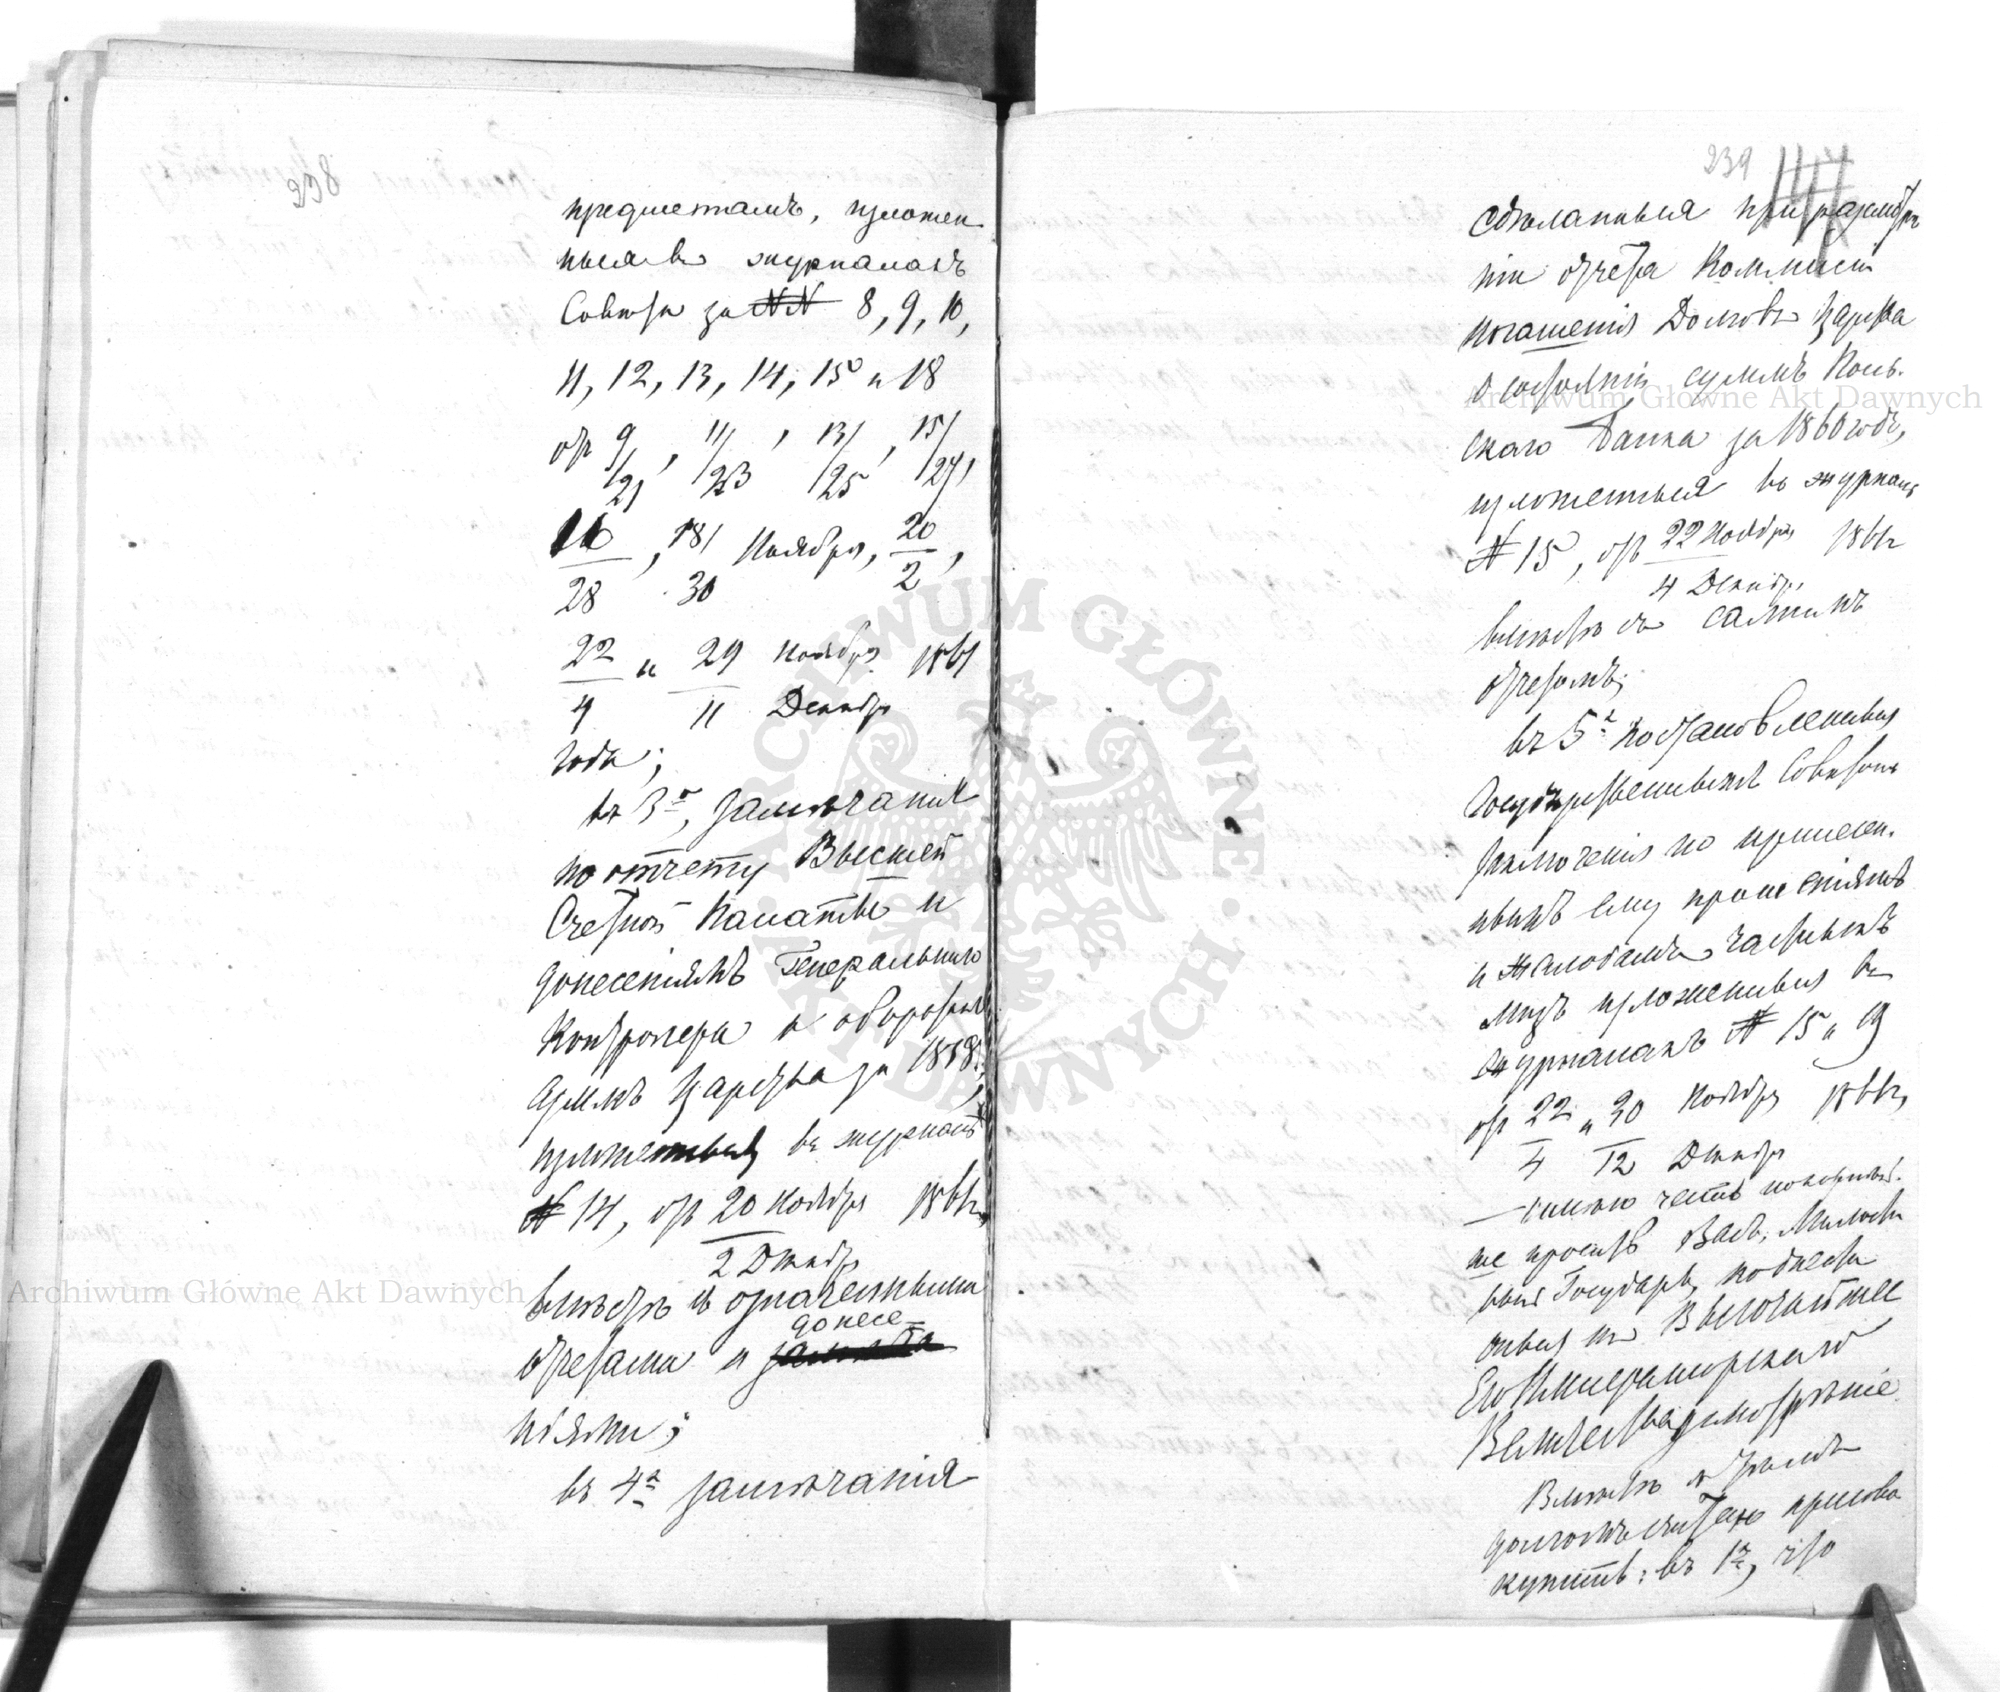 238
предметамъ, изложен
ныя въ журналахъ
Совѣта за №№ 8, 9, 10,
11, 12, 13, 14, 15 и 18
отъ 9/21, 11/23, 13/25, 15/27,
16/28, 18/30 Ноября, 20/2,
22/4 и 29/11 Ноября/Декабр 1861
года;
въ 3х, замѣчанія
по отчету Высшей
Счетной Палаты и
донесеніямъ Генеральнаго
Контролера и оборотныхъ
сумм Царства за 1858,
изложенныя въ журналѣ
№ 14, отъ 20 Ноября/2 Декабр 1861г,
вмѣстѣ съ означенными
отчетами и донесе-
ніями;
въ 4х замѣчанія
239
сдѣланныя при разсмотрѣ
ніи отчета Коммисіи
погашенія Долговъ Царства
о состояніи суммъ Поль-
скаго Банка за 1860 годъ,
изложенныя въ журналѣ
№ 15, отъ 22 Ноября/4 Декабр, 1861г
вмѣстѣ съ самимъ
отчетомъ;
въ 5х Постановленныя
Государственнымъ Совѣтомъ
заключенія по принесен-
нымъ ему прошеніямъ
и жалобамъ частныхъ
лицъ изложенныя въ
журналахъ № 15 и 19
отъ 22/4 и 30/12 Ноября/Декабр 1861г,
— имѣю честь покорнѣй-
ше просить Васъ, Милости
вый Государь, поднести
оныя на Высочайшее
Его Императорскаго
Величества усмотрѣніе.
Вмѣстѣ съ тѣмъ
долгомъ считаю присово
купить: въ 1х, что
Archiwum Główne Akt Dawnych
Archiwum Główne Akt Dawnych
ARCHIWUM GŁÓWNE · AKT DAWNYCH ·